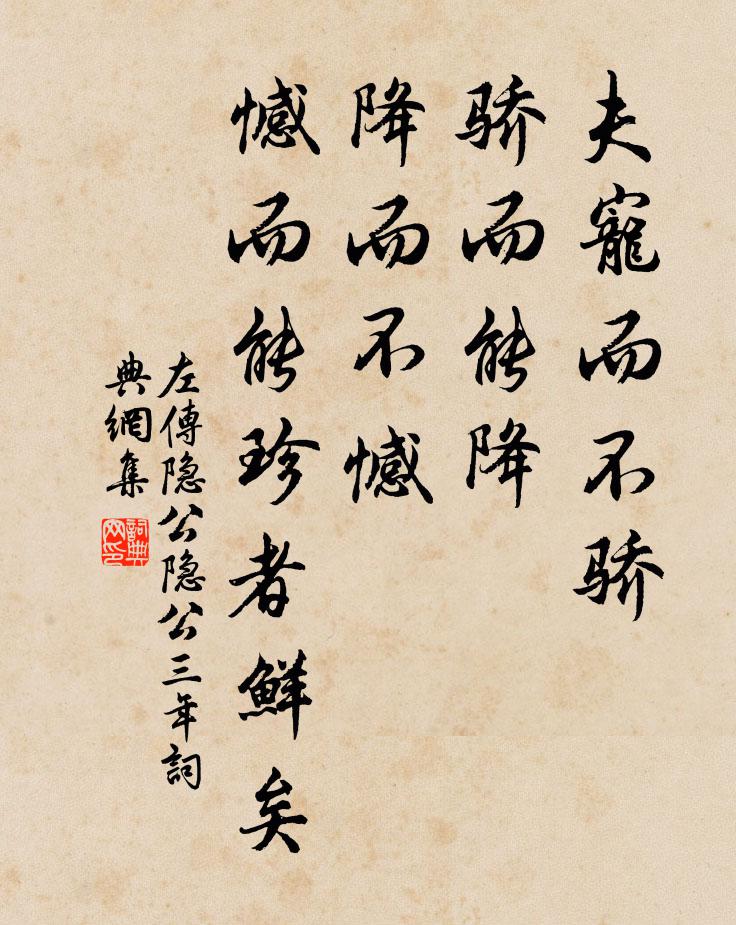 夫寵而不骄
骄而能降
降而不憾
憾而能珍者鮮矣
左傳隐公隐公三年詞
典網集
詞典
网印